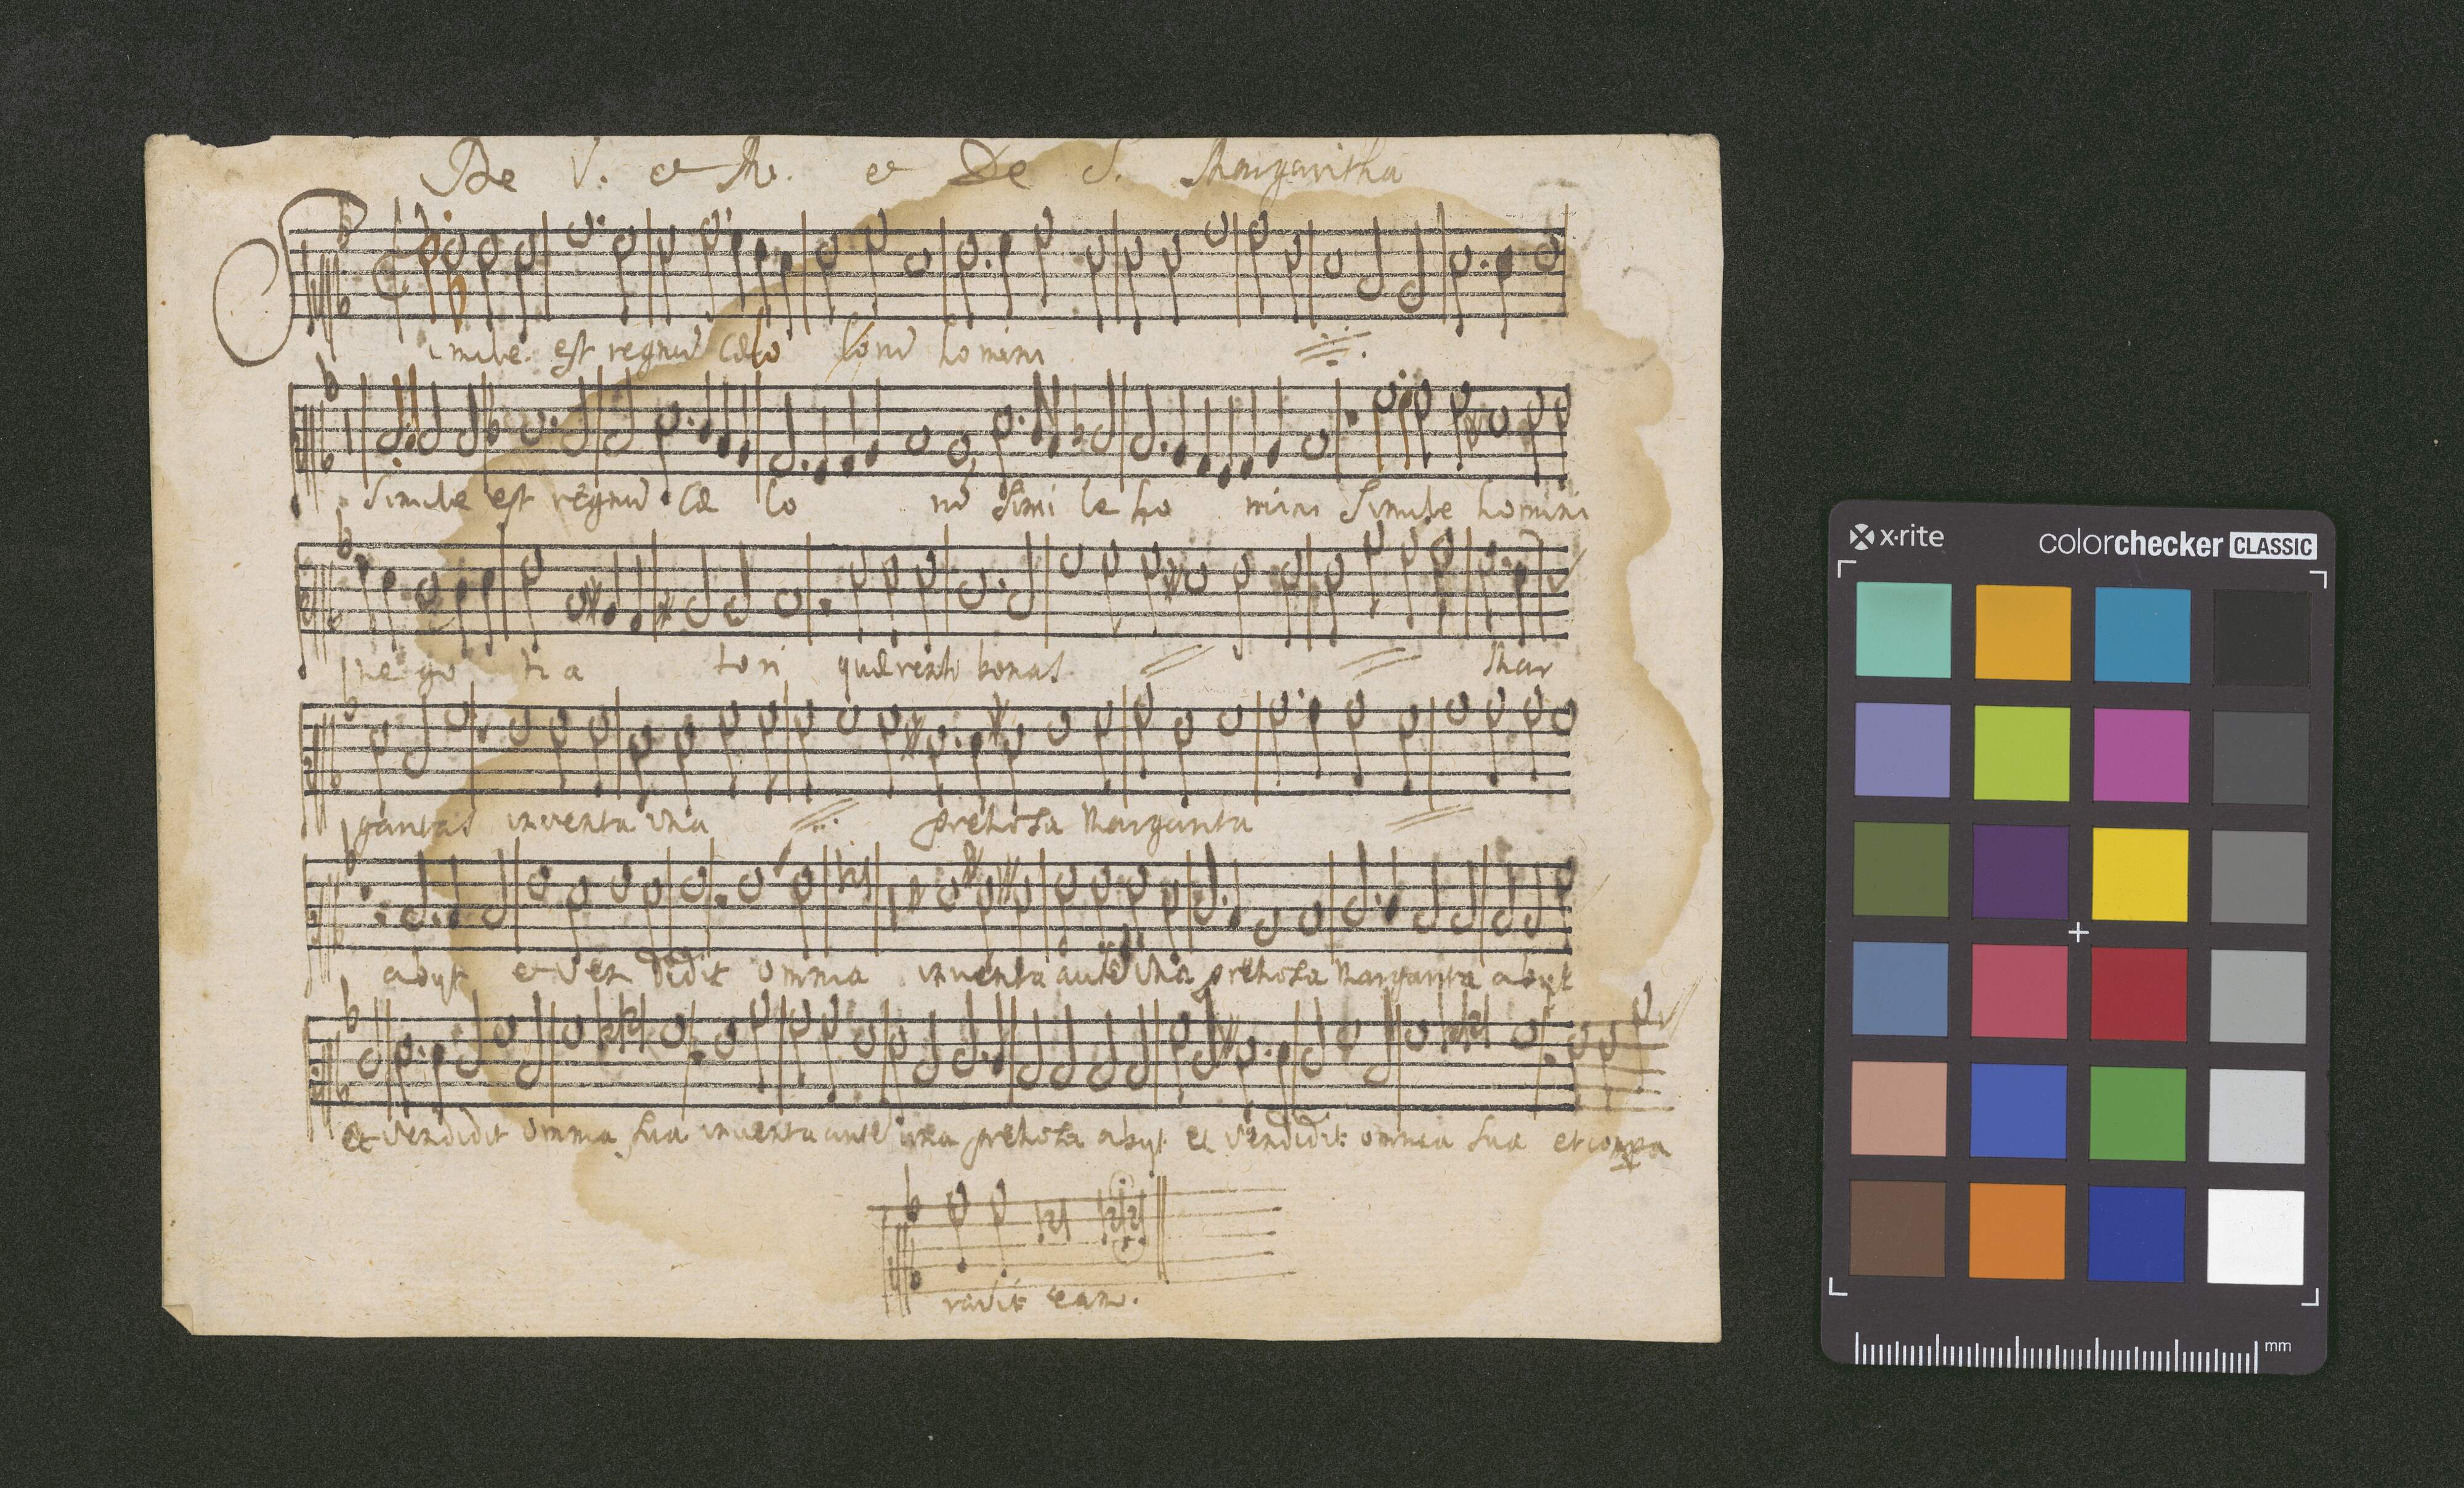 De V. et M. et De S. Margaritha
Simile est regnũ Cælo lorũ homini
Simile est regnũ Cæ lo rũ Simi le ho mini Simile homini
ne go ti a tori quærenti bonas Mar
garitas inventa una pretiosa Margarita
abijt et ven didit omnia inventa autẽ una pretiosa Margarita abijt
et vendidit omnia sua inventa autẽ una pretiosa abijt et vendidit omnia sua et compa
ravit eam.
x-rite
colorchecker CLASSIC
mm